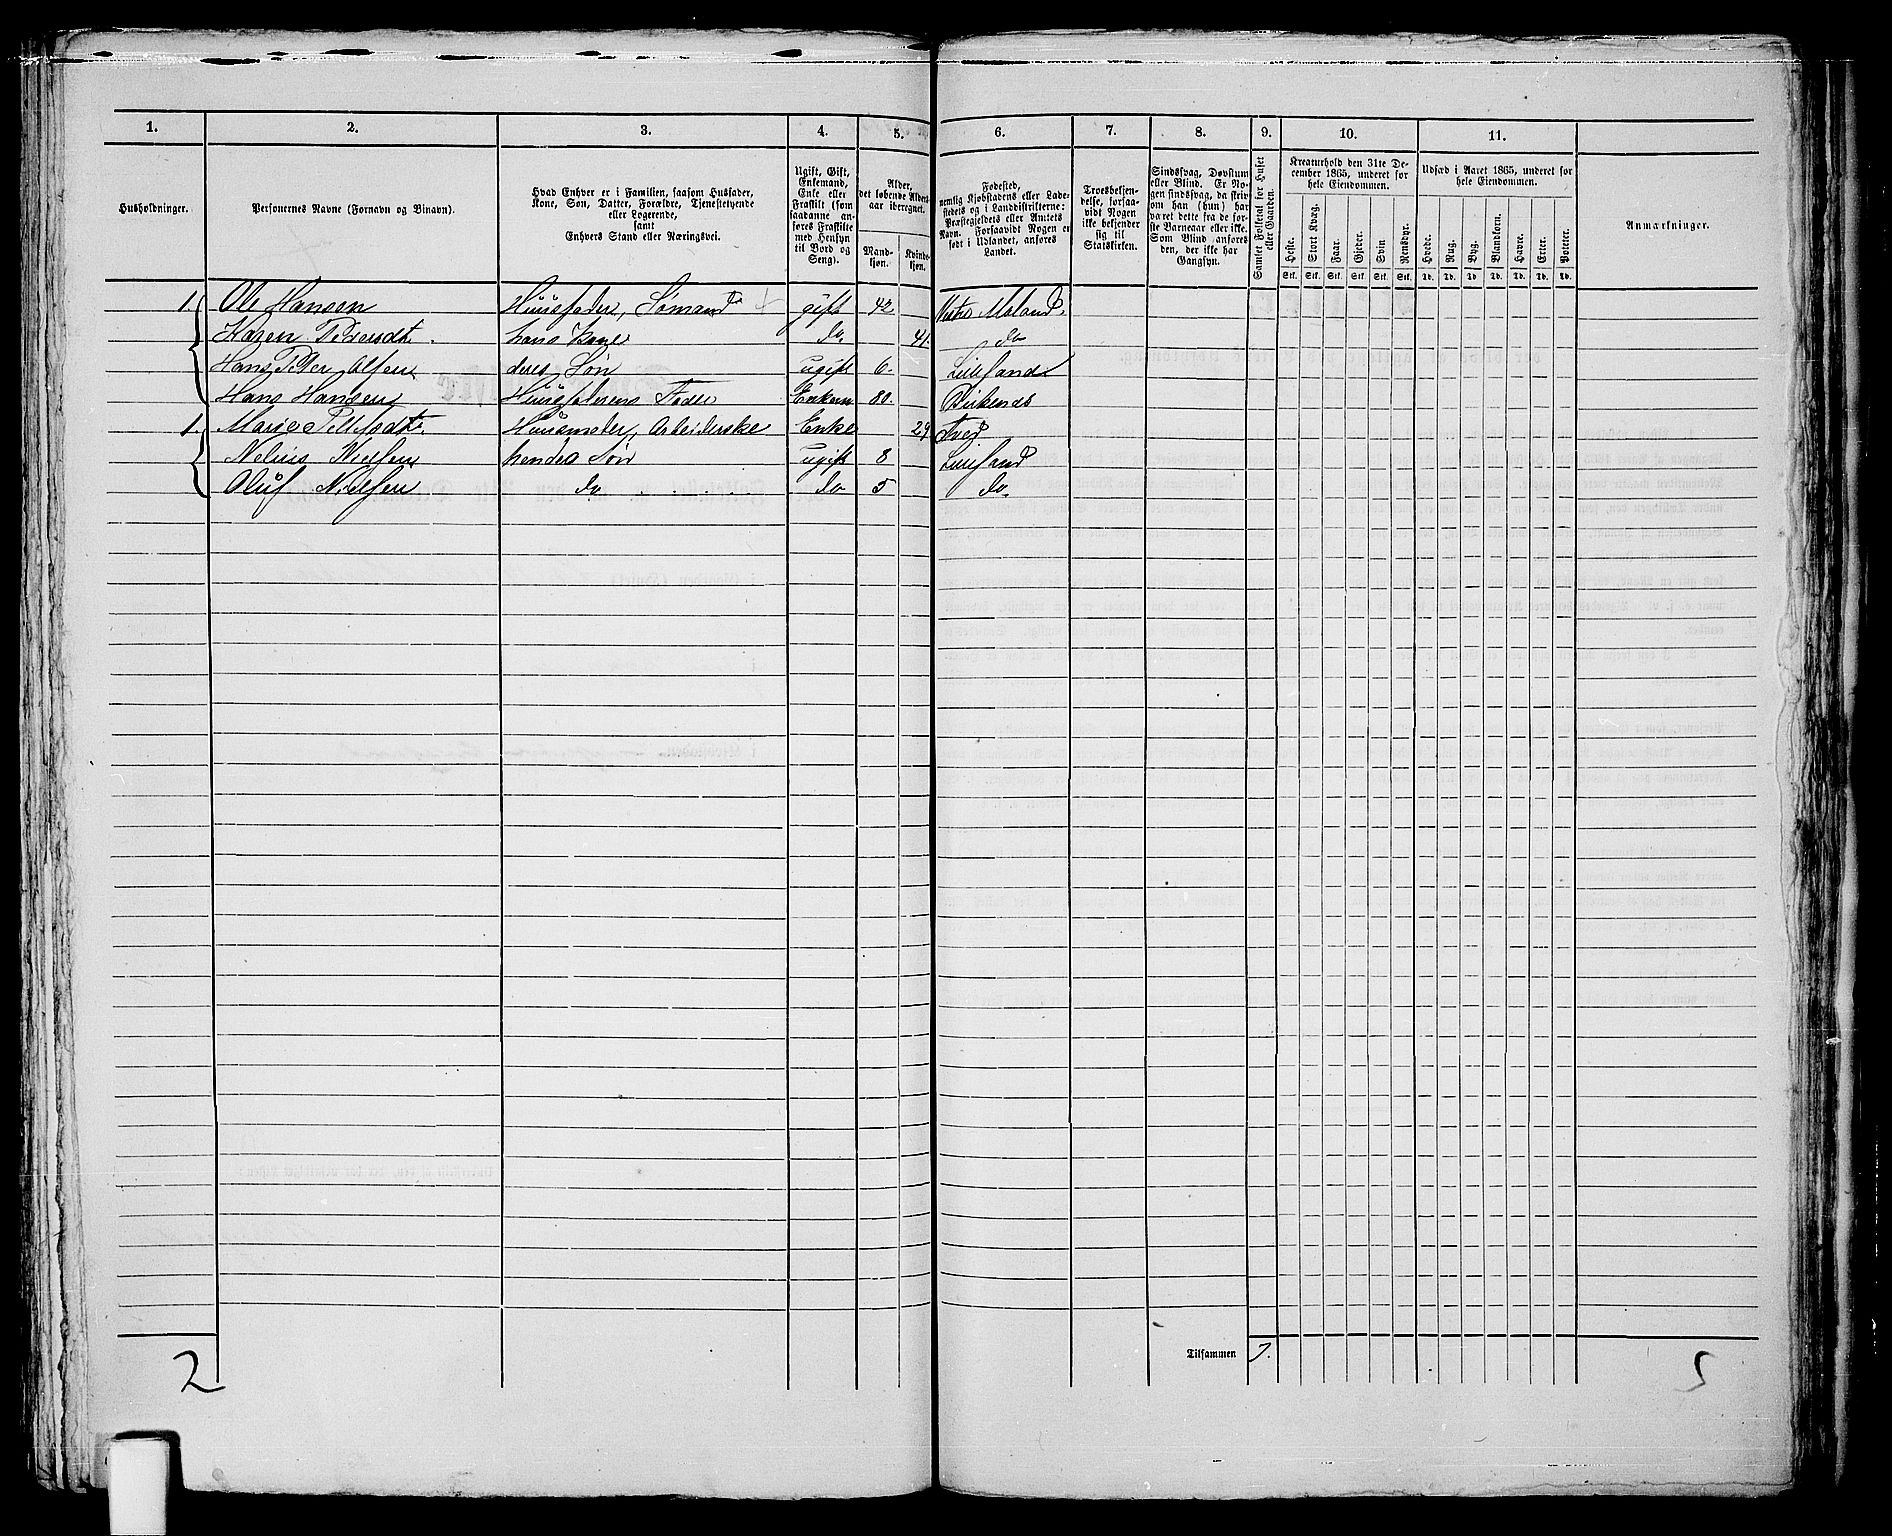 1. 2. 3. 4. 5. 6. 7. 8. 9. 10. 11.
Husholdninger.
Personernes Navne (Fornavn og Binavn).
Hvad Enhver er i Familien, saasom Husfader,
Kone, Søn, Datter, Forældre, Tjenestetyende
eller Logerende,
samt
Enhvers Stand eller Næringsvei.
Ugift, Gift,
Enkemand,
Enke eller
Fraskilt (som
saadanne an-
føres Fraskilte
med Hensyn
til Bord og
Seng).
Alder,
det løbende Alders-
aar iberegnet.
Mand-
kjøn.
Kvinde-
kjøn.
Fødested,
nemlig Kjøbstadens eller Lade-
stedets og i Landdistrikterne:
Præstegjeldets eller Amtets
Navn. Forsaavidt Nogen er
født i Udlandet, anføres
Landet.
Troesbekjen-
delse, forsaa-
vidt Nogen
ikke bekjender
sig til
Statskirken.
Sindssvag, Døvstum
eller Blind. Er No-
gen sindssvag, da skriv
om han (hun) har
været dette fra de før-
ste Barneaar eller ikke.
Som Blind anføres
den, der ikke har
Gangsyn.
Samlet Folketal for Huset
eller Gaarden.
Kreaturhold den 31te De-
cember 1865, underet for
hele Eiendommen.
Heste. Stort Kvæg. Faar. Gjeder. Svin Rensdyr.
Stk. Stk. Stk. Stk. Stk. Stk.
Udsæd i Aaret 1865, underet for
hele Eiendommen.
Hvede. Rug. Byg. Blandkorn. Havre. Erter. Poteter.
Td. Td. Td. Td. Td. Td. Td.
Anmærkninger.
1. Ole Hansen Huusfader, Sømand gift 42. Vestre Moland.
Karen Pedersdt. hans Kone do. 41. do
Hans Peter Olsen deres Søn ugift 6. Lillesand
Hans Hansen Huusfaderens Fader Enkem 80. Birkenæs
1. Marie Huusmoder, Arbeiderske Enke 29 Tved
Nelius Nielsen hendes Søn ugift 8 Lillesand
Oluf Nielsen do do 5 do
Tilsammen 7.
2 5